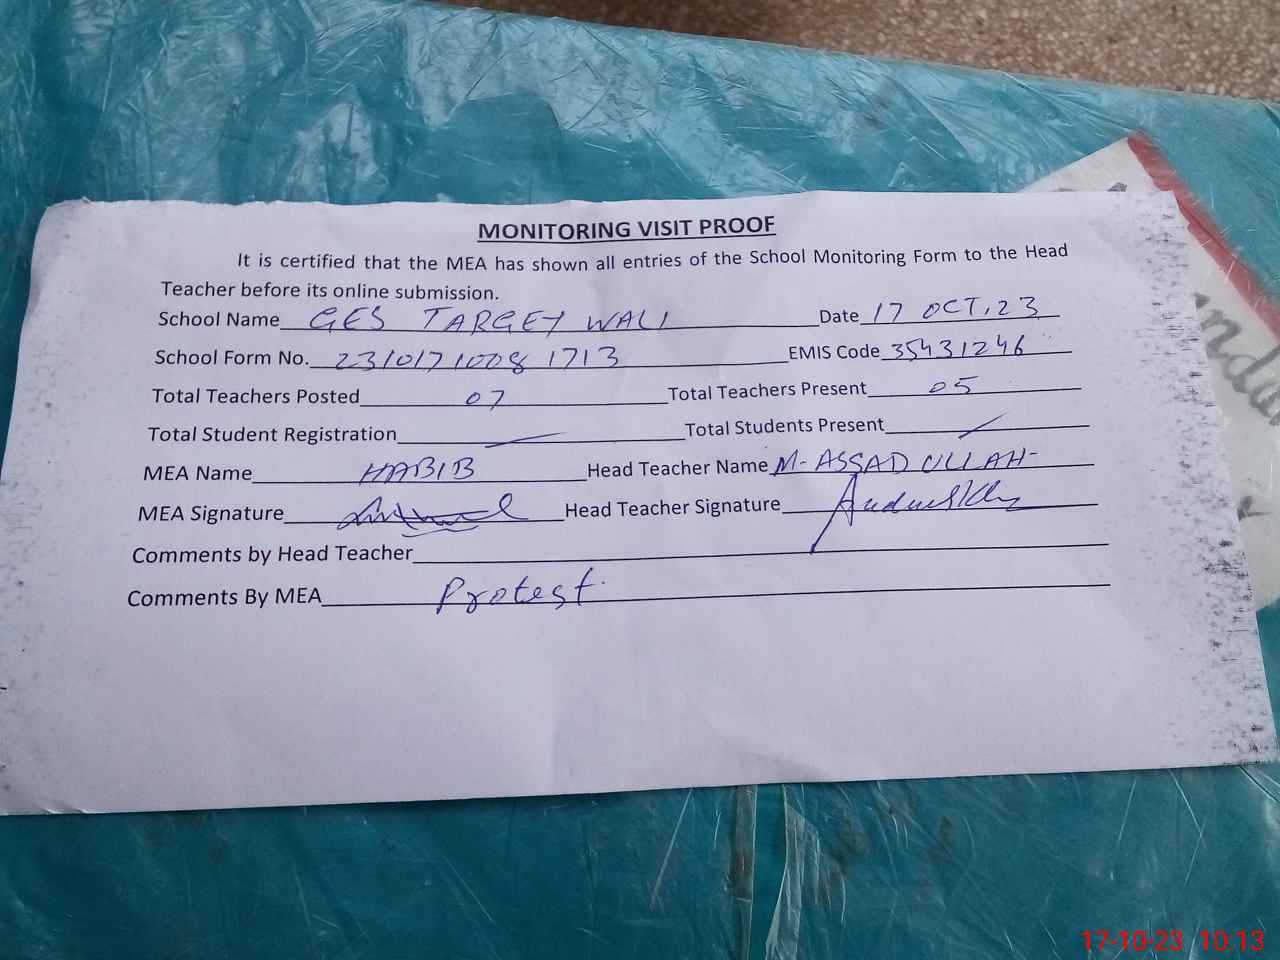 MONITORING VISIT PROOF
It is certified that the MEA has shown all entries of the School Monitoring Form to the Head
Teacher before its online submission.
School Name GES TARGEY WALI Date 17 OCT, 23
School Form No. 23101710081713 EMIS Code 35431246
Total Teachers Posted 07 Total Teachers Present 05
Total Student Registration Total Students Present
MEA Name HABIB Head Teacher Name M- ASSAD ULLAH-
MEA Signature Head Teacher Signature
Comments by Head Teacher
Comments By MEA Protest.
17-10-23 10:13